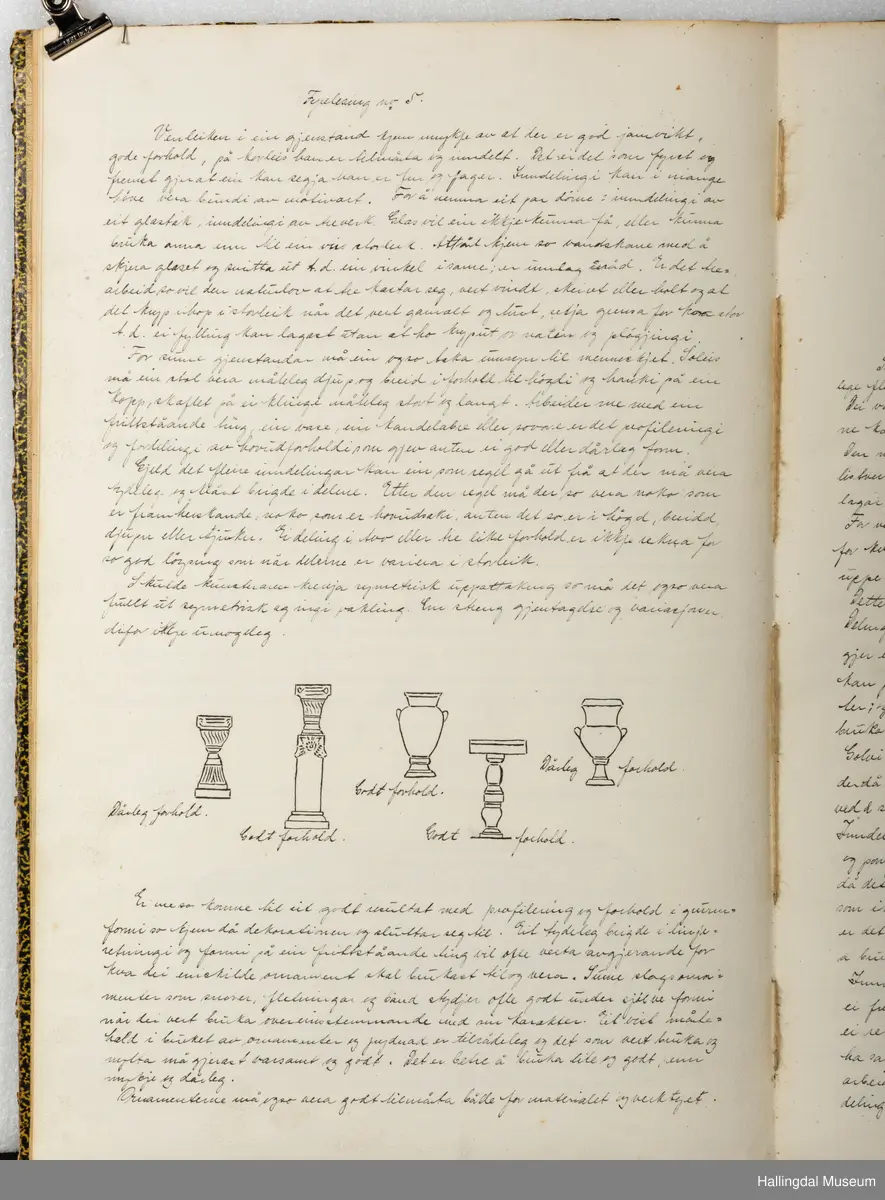 Fyrelesung no 5.
Venleiken i ein gjenstand kjem mykje av at der er god jamvikt,
gode forhold, på korleis han er tilmåta og inndelt. Det er det som fyrst og
fremst gjer at ein kan segja han er fin og fager. Inndelingi kan i mange
höve vera bundi av motivart. For å nemna eit par döme: inndelingi av
eit glastak, inndelingi av treverk. Glas vil ein ikkje kunna få, eller kunna
bruka anna enn til ein viss storleik. Attåt kjem so vandskane med å
skjera glaset og smitta ut t.d. ein vinkel i same; er umlag uråd. Er det tre-
arbeid, so vil den naturlov at tre kastar seg, vert vindt, skeivt eller holt og at
det kryp ihop i storleik når det vert gamalt og turt, setja grensa for kor stor
t.d. ei fylling kan lagast utan at ho kryp ut or noten og plögjingi.
For sume gjenstandar må ein ogso taka umsyn til mennesket. Soleis
må ein stol vera måteleg djup og breid i forhold til högdi og hanki på ein
kopp, skaftet på ei klinge måteleg stort og langt. Arbeider me med ein
frittståande ting, ein vase, ein kandelabre eller sovore er det profileringi
og fordelingi av hovudforholdi som gjev anten ei god eller dårleg form.
Gjeld det fleire inndelingar kan ein som regel gå ut frå at der må vera
tydeleg og klårt brigde i delene. Etter den regel må der so vera noko som
er framherskande, noko, som er hovudsaki, anten det so er i högd, breidd,
djupn eller tjukker. Ei deling i tvo eller tre like forhold er ikkje rekna for
so god löysing som når delerne er variera i storleik.
Skulde kunstnaren kredja symetrisk uppattaking so må det ogso vera
fullt ut symetrisk og ingi pakling. Ein streng gjentagelse og variasjoner
difor ikkje umogeleg.
Dårleg forhold.
Godt forhold.
Godt forhold.
Godt forhold.
Dårleg forhold.
Er me so komne til eit godt resultat med profilering og forhold i grunn-
formi so kjem då dekorationen og sluttar seg til. Eit tydeleg brigde i linje-
retningi og formi på ein frittståande ting vil ofte verta avgjerande for
kva dei einskilde ornament skal brukast til og vera. Sume slags orna-
menter som snorer, fletningar og band stydjer ofte godt under sjölve formi
når dei vert bruka overeinstemmande med sin karakter. Eit visst måte-
hald i bruket av ornamenter og prydnad er tilrådeleg og det som vert bruka og
nytta må gjerast varsamt og godt. Det er betre å bruka lite og godt, enn
mykje og dårleg.
Ornamenterne må ogso vera godt tilmåta både for materialet og verktyet.
lege
Dei
ne
Den
lagar
For
for
uppe
Dette
Deling
gjer
kan
ler;
bruka
Golvi
der då
ved å
og
då det
som i
er det
a
ei
ei
ha
arbeid
deling
Hallingdal Museum